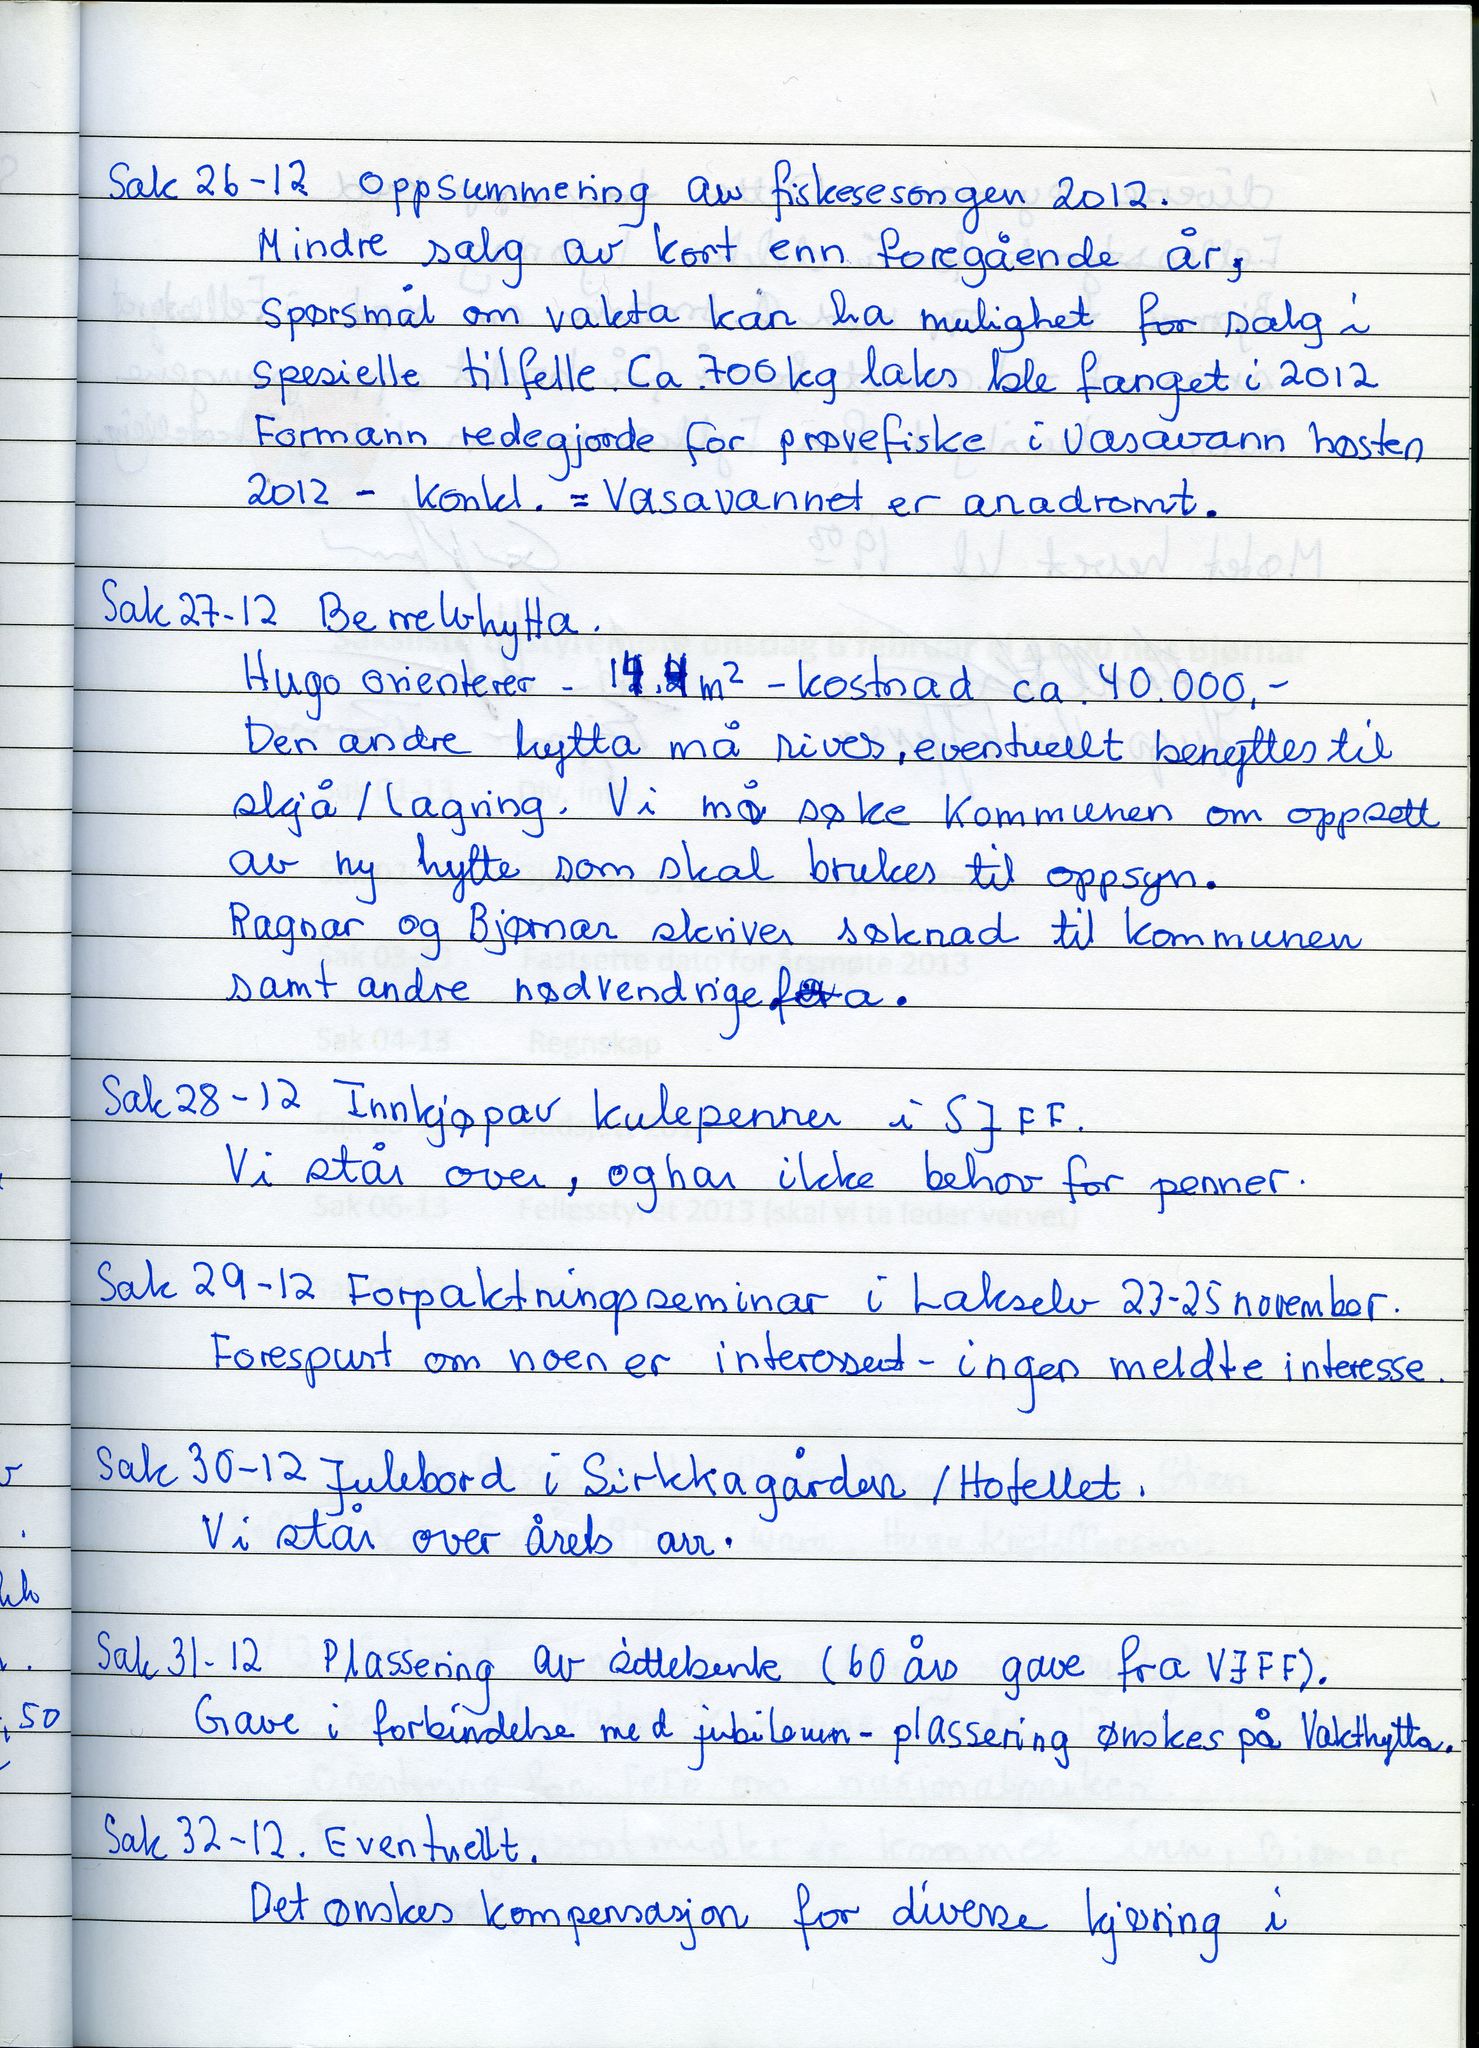 Sak 26-12 Oppsummering av fiskesesongen 2012.
Mindre salg av kort enn foregående år,
spørsmål om vakta kan ha mulighet for salg i
spesielle tilfelle. Ca. 700 kg laks ble fanget i 2012
Formann redegjorde for prøvefiske i Vasavann høsten
2012 - konkl. = Vasavannet er anadromt.
Sak 27-12 Berrelvhytta.
Hugo orienterer - m² - kostnad ca. 40.000,-
Den andre hytta må rives, eventuellt benyttes til
skjå / lagring. Vi må søke kommunen om oppsett
av ny hytte som skal brukes til oppsyn.
Ragnar og Bjørnar skriver søknad til kommunen
samt andre nødvendrige
Sak 28-12 Innkjøp av kulepenner i SJFF.
Vi står over, og har ikke behov for penner.
Sak 29-12 Forpaktningsseminar i Lakselv 23-25 november.
Forespurt om noen er interessert - ingen meldte interesse.
Sak 30-12 Julebord i Sirkkagården / Hotellet.
Vi står over årets arr.
Sak 31-12 Plassering av sittebenk (60 års gave fra VJFF).
Gave i forbindelse med jubileum - plassering ønskes på Vakthytta.
Sak 32-12. Eventuellt.
Det ønskes kompensasjon for diverse kjøring i
, 50